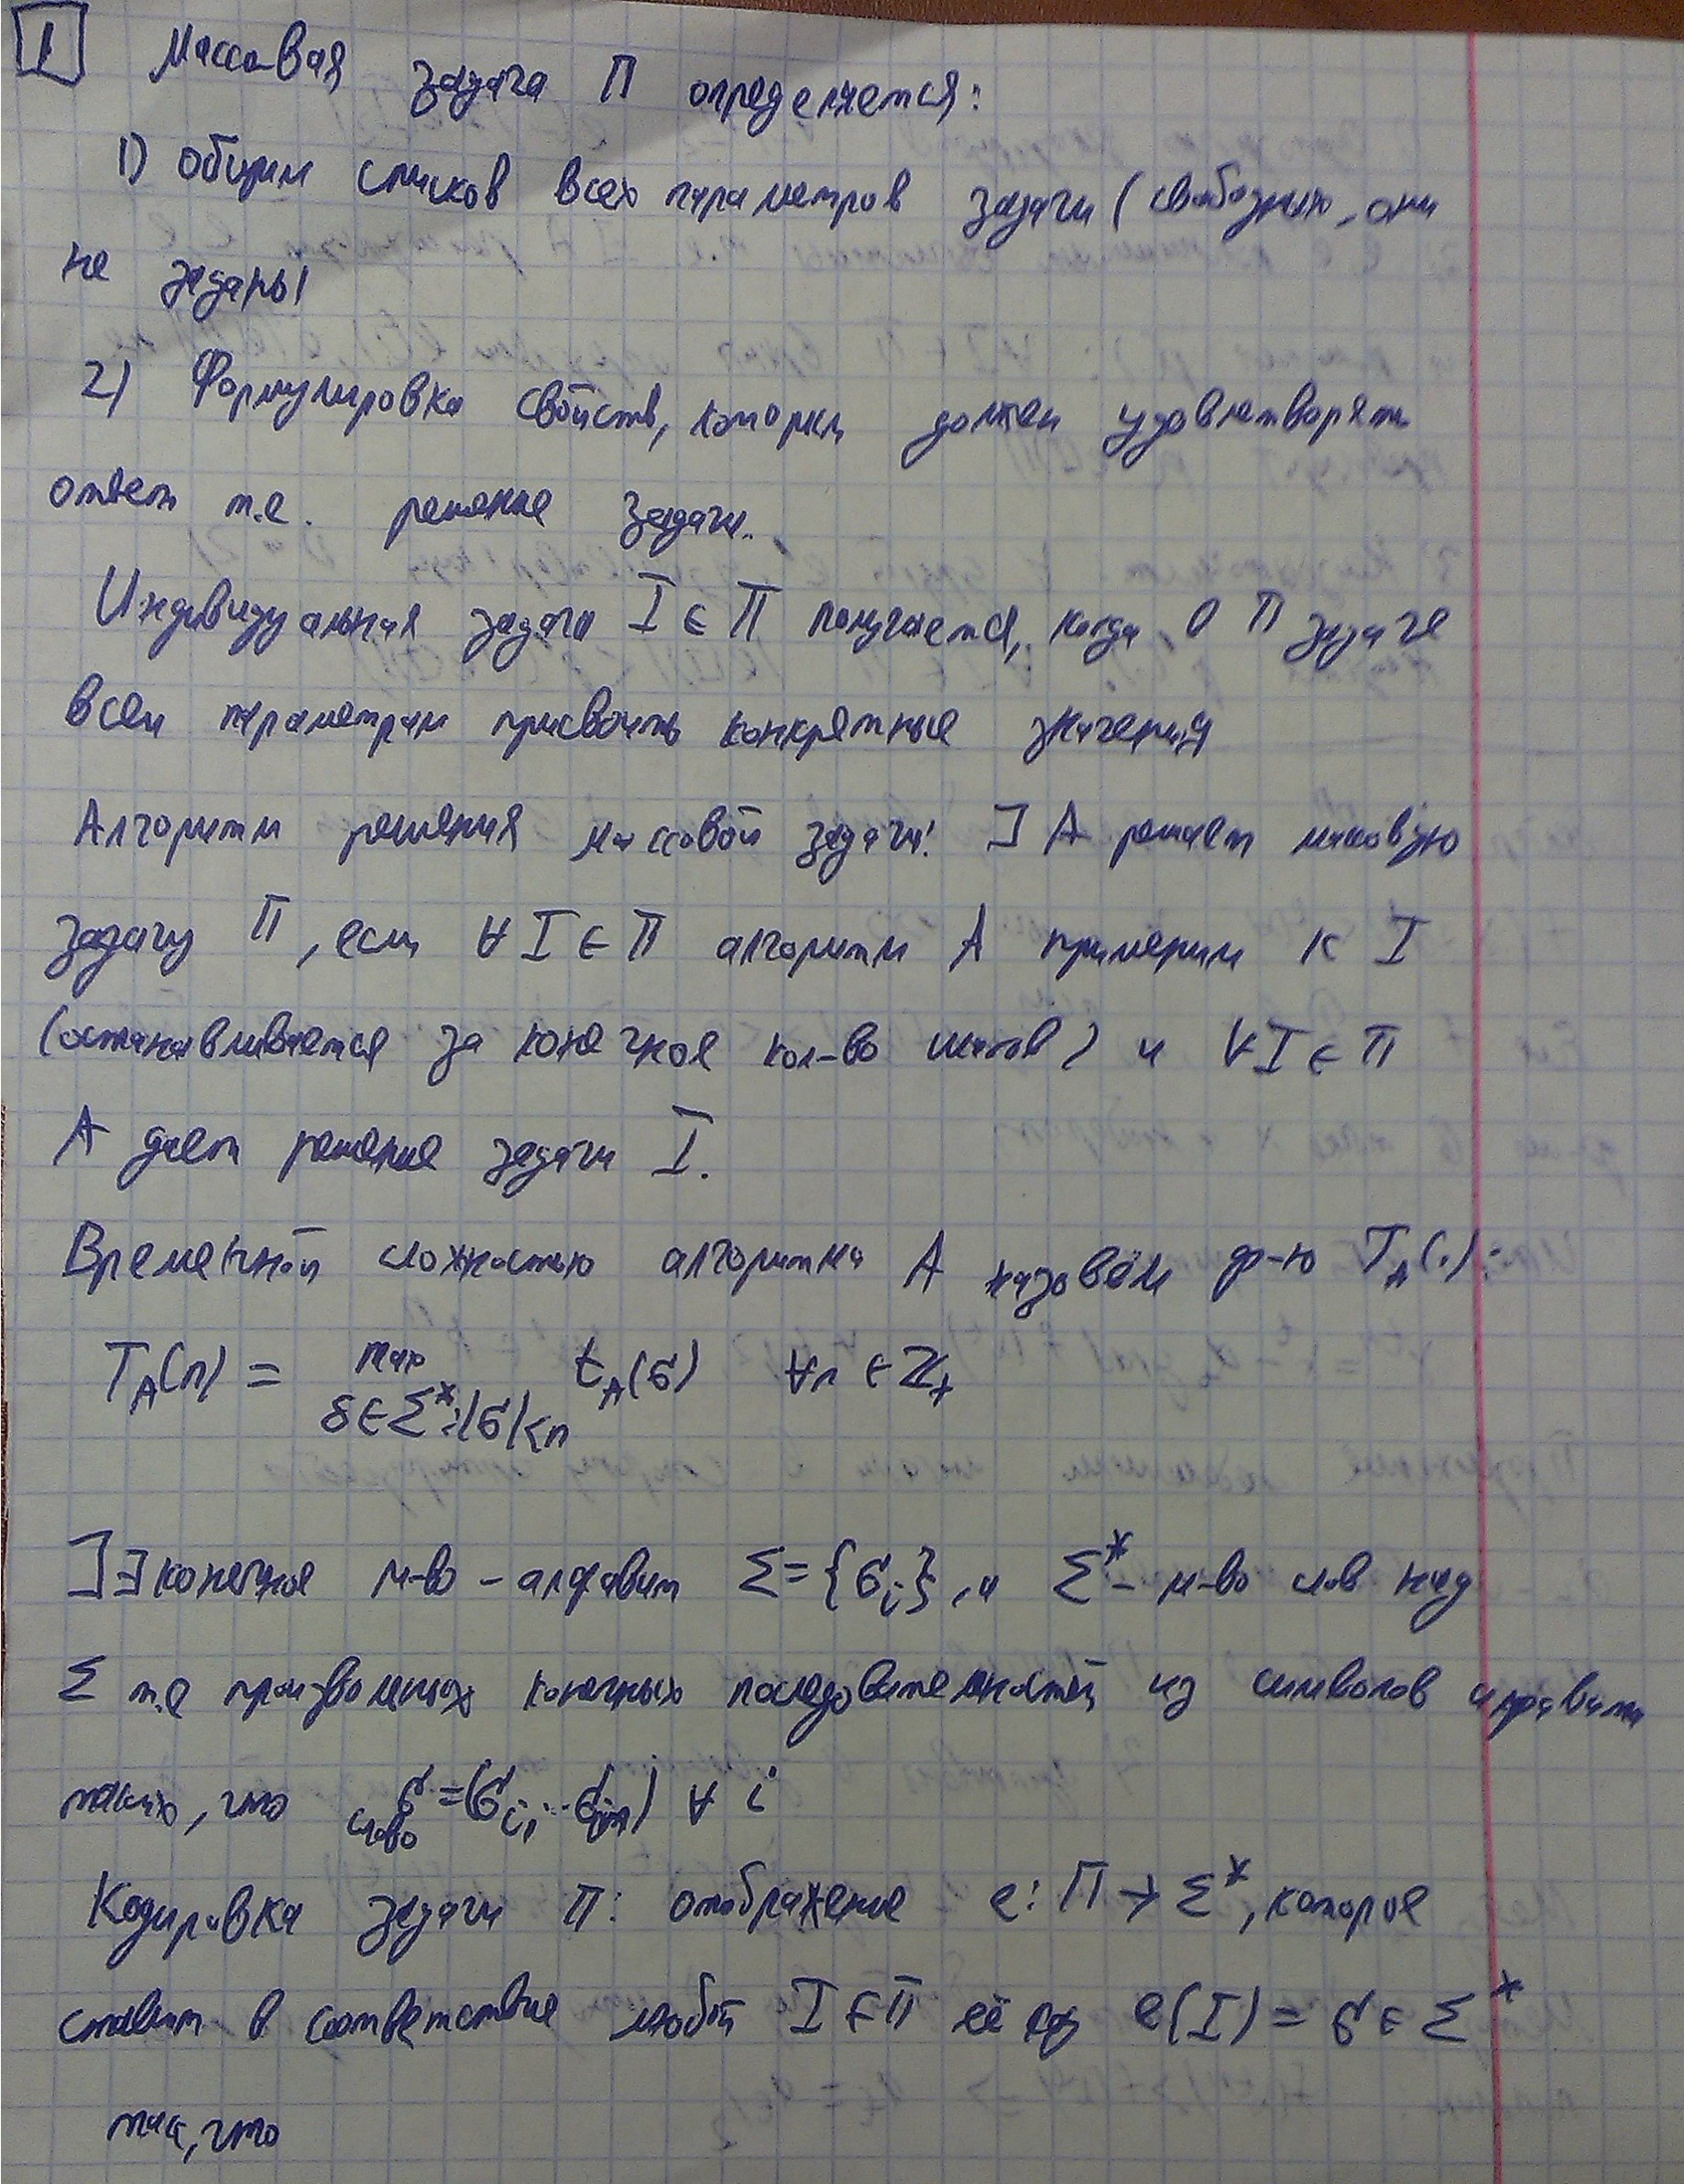 1 Массовая задача П определяется:
1) общим списков всех параметров задачи (свободных, они
не заданы
2) Формулировка свойств, которым должен удовлетворять
ответ т.е. решение задачи.
Индивидуальная задача I ∈ П получается, когда в П задаче
всем параметрам присвоить конкретные значения
Алгоритм решения массовой задачи: ] A решает массовую
задачу П, если ∀ I ∈ П алгоритм A применим к I
(останавливается за конечное кол-во шагов) и ∀ I ∈ П
A дает решение задачи I.
Временной сложностью алгоритма A назовём ф-ю T_A(·):
T_A(n) = max t_A(σ) ∀n ∈ Z_+
σ ∈ Σ*:|σ|<n
] ∃ конечное м-во - алфавит Σ = {σ_i}, а Σ* - м-во слов над
Σ т.е произвольных конечных последовательностей из символов алфавита
таких, что слово σ = (σ_i, ... ) ∀ i
Кодировка задачи П: отображение e: П → Σ*, которое
ставит в соответствие любой I ∈ П её код e(I) = σ ∈ Σ*
так, что